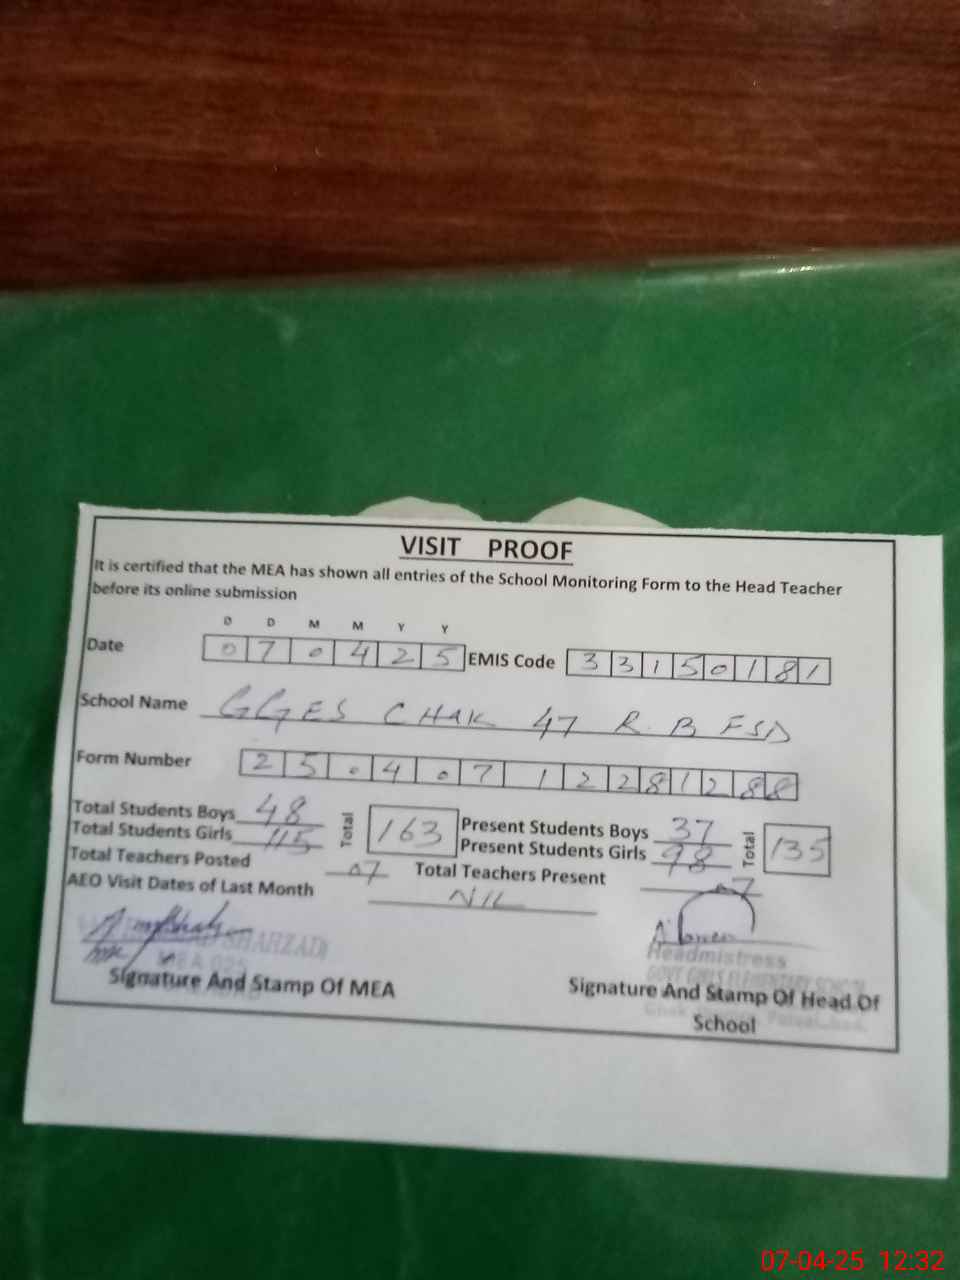 VISIT PROOF
It is certified that the MEA has shown all entries of the School Monitoring Form to the Head Teacher
before its online submission
D D M M Y Y
Date 0 7 0 4 2 5 EMIS Code 3 3 1 5 0 1 8 1
School Name GGES CHAK 47 R.B FSD
Form Number 2 5 0 4 0 7 1 2 2 8 1 2 8 8
Total Students Boys 48 Total 163 Present Students Boys 37 Total 135
Total Students Girls 115 Present Students Girls 98
Total Teachers Posted 07 Total Teachers Present 07
AEO Visit Dates of Last Month NIL
SHAHZAD
MEA
Headmistress
GOVT GIRLS ELEMENTARY SCHOOL
Signature And Stamp Of MEA Signature And Stamp Of Head Of
School
07-04-25 12:32